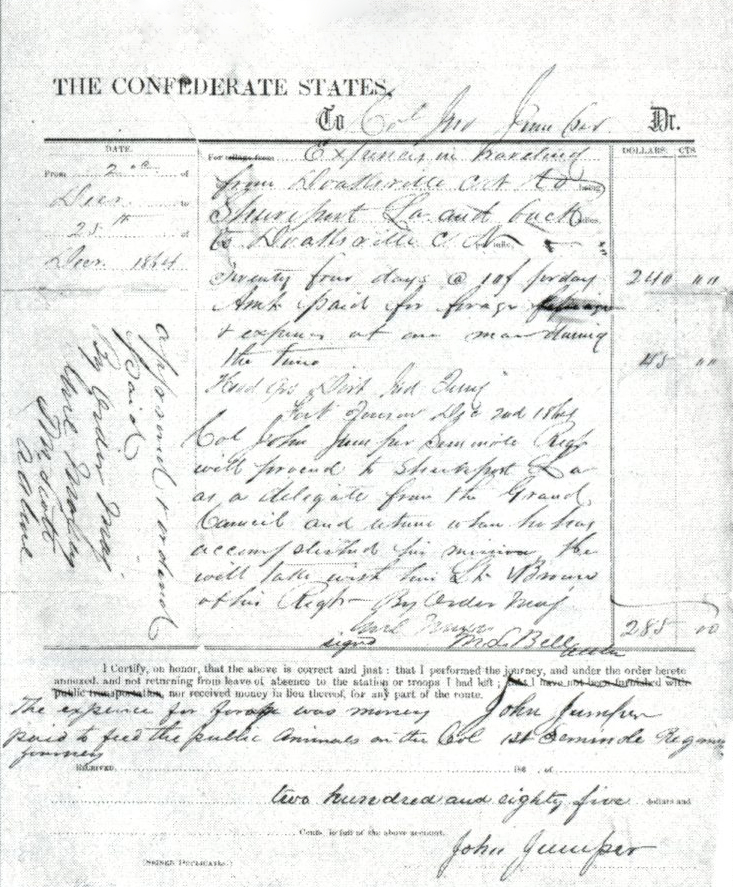 THE CONFEDERATE STATES,
To Col Jno Jumper Dr.
DATE.
DOLLARS. CTS
From 2nd of
Decr to
25th of
Decr 1864
For Expenses in traveling
from Doaksville C.N. to being
Shreveport La and back miles,
to Doaksville C.N. per mile,
Twenty four days @ 10$ per day 240 ""
Amt paid for forage
& expense of one man during
the time 45 ""
Head Qrs Dist Ind Terry
Fort Towson Dec 2nd 1864
Col John Jumper Seminole Regt
will proceed to Shreveport La
as a delegate from the Grand
Council and return when he has
accomplished his mission, He
will take with him Lt Brown
of his Regt By Order Maj
Genl Maxey
signed M. L. Bell 285 00
approved & ordered
paid
By Order Maj
Genl Maxey
I Certify, on honor, that the above is correct and just: that I performed the journey, and under the order hereto
annexed, and not returning from leave of absence to the station or troops I had left; that I have not been furnished with
public transportation, nor received money in lieu thereof, for any part of the route.
The expense for forage was money John Jumper
paid to feed the public animals on the Col 1st Seminole Regmn
journey
RECEIVED, 186 , of
two hundred and eighty five dollars and
Cents, in full of the above account.
John Jumper
(SIGNED DUPLICATE.)